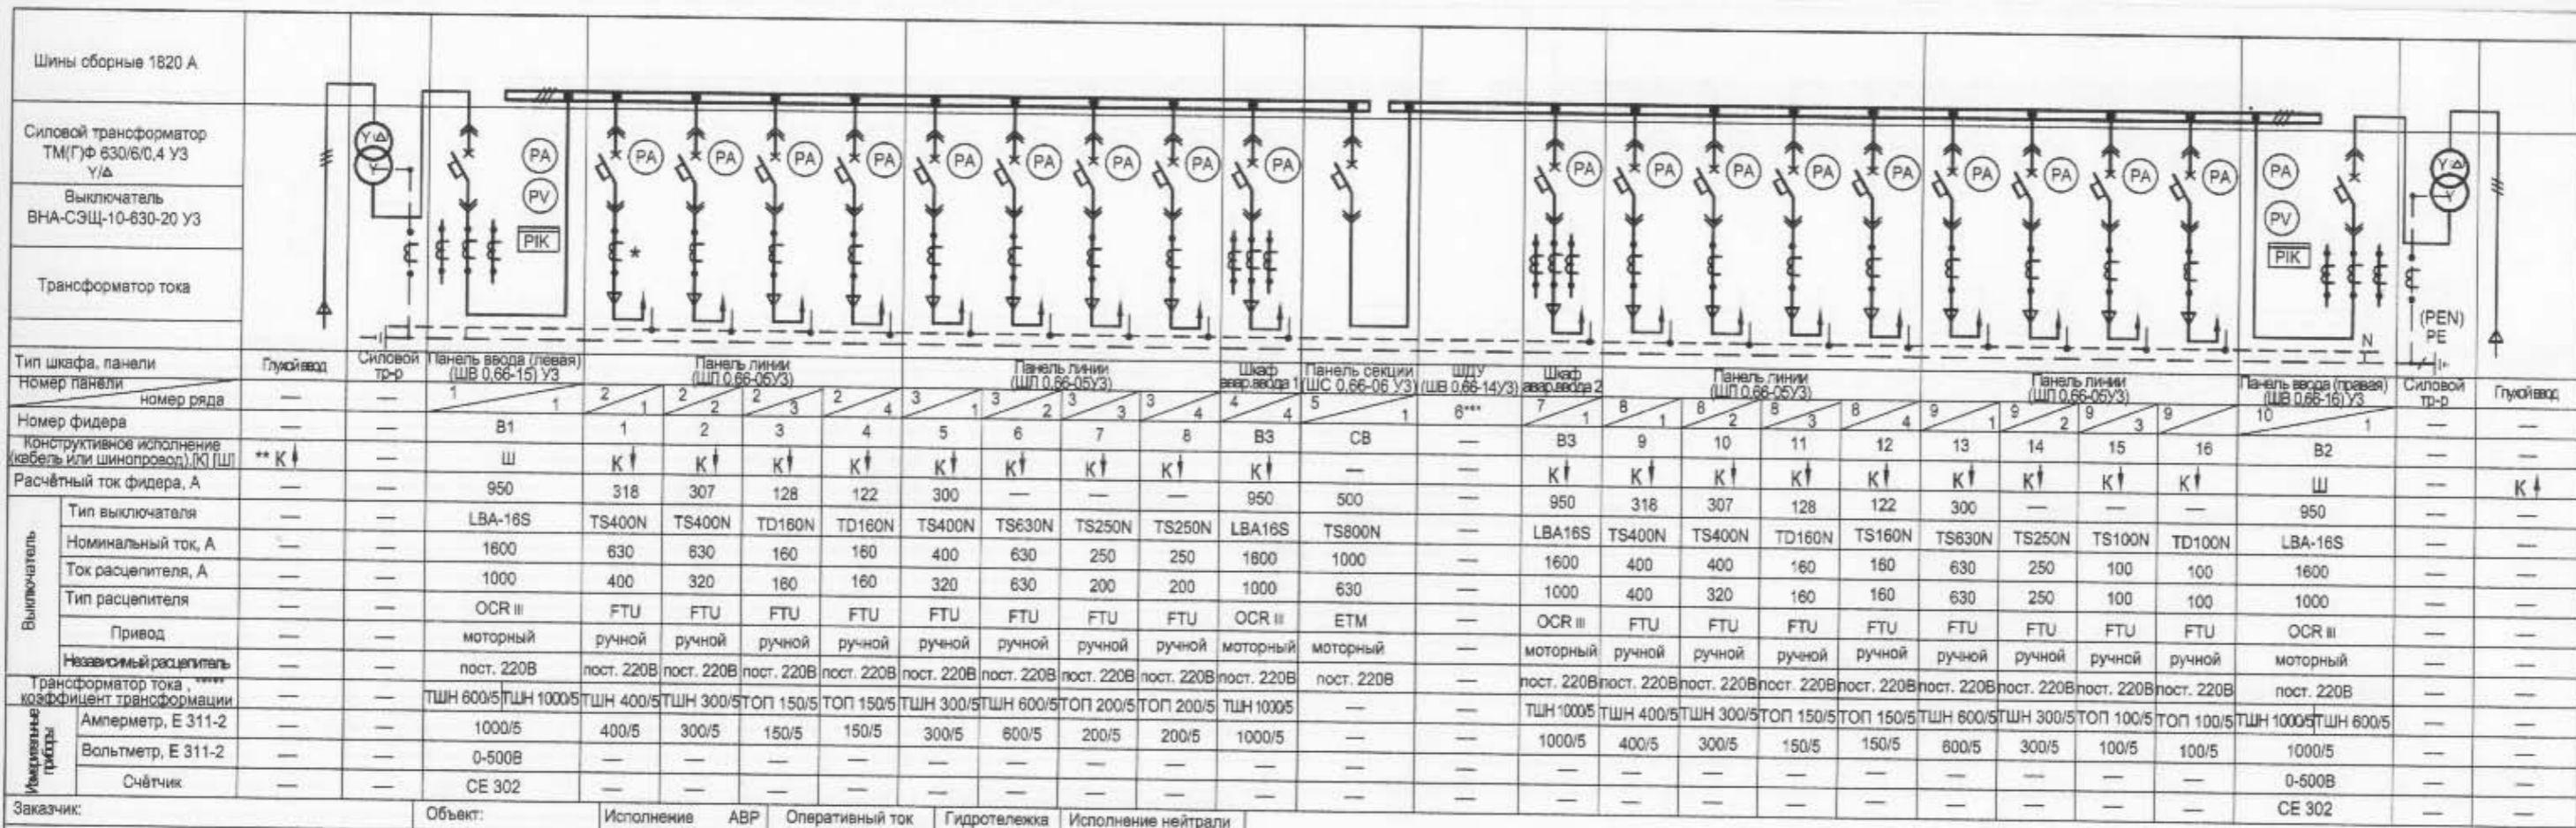 Шины сборные 1820 А
Силовой трансформатор
ТМ(Г)Ф 630/6/0,4 У3
Y/Δ
Выключатель
ВНА-СЭЩ-10-630-20 У3
Трансформатор тока
Y/Δ Y PA PV PIK PA * PA PA PA PA PA PA PA PA PA PA PA PA PA PA PA PA PA PA PV PIK Y/Δ Y
(PEN)
PE
N
Тип шкафа, панели Глухой ввод Силовой тр-р Панель ввода (левая) (ШВ 0,66-15) У3 Панель линии (ШЛ 0,66-05У3) Панель линии (ШЛ 0,66-05У3) Шкаф авар.ввода 1 Панель секции (ШС 0,66-06 У3) ШДУ (ШВ 0,66-14У3) Шкаф авар.ввода 2 Панель линии (ШЛ 0,66-05У3) Панель линии (ШЛ 0,66-05У3) Панель ввода (правая) (ШВ 0,66-16) У3 Силовой тр-р Глухой ввод
Номер панели номер ряда — — 1/1 2/1 2/2 2/3 2/4 3/1 3/2 3/3 3/4 4/4 5/1 6*** 7/1 8/1 8/2 8/3 8/4 9/1 9/2 9/3 9 10/1 — —
Номер фидера — — В1 1 2 3 4 5 6 7 8 В3 СВ — В3 9 10 11 12 13 14 15 16 В2 — —
Конструктивное исполнение (кабель или шинопровод),[К] [Ш] ** К — Ш К К К К К К К К К — — К К К К К К К К К Ш — К
Расчётный ток фидера, А — — 950 318 307 128 122 300 — — — 950 500 — 950 318 307 128 122 300 — — — 950 — —
Выключатель
Тип выключателя — — LBA-16S TS400N TS400N TD160N TD160N TS400N TS630N TS250N TS250N LBA16S TS800N — LBA16S TS400N TS400N TD160N TS160N TS630N TS250N TS100N TD100N LBA-16S — —
Номинальный ток, А — — 1600 630 630 160 160 400 630 250 250 1600 1000 — 1600 400 400 160 160 630 250 100 100 1600 — —
Ток расцепителя, А — — 1000 400 320 160 160 320 630 200 200 1000 630 — 1000 400 320 160 160 630 250 100 100 1000 — —
Тип расцепителя — — OCR III FTU FTU FTU FTU FTU FTU FTU FTU OCR III ETM — OCR III FTU FTU FTU FTU FTU FTU FTU FTU OCR III — —
Привод — — моторный ручной ручной ручной ручной ручной ручной ручной ручной моторный моторный — моторный ручной ручной ручной ручной ручной ручной ручной ручной моторный — —
Независимый расцепитель — — пост. 220В пост. 220В пост. 220В пост. 220В пост. 220В пост. 220В пост. 220В пост. 220В пост. 220В пост. 220В пост. 220В — пост. 220В пост. 220В пост. 220В пост. 220В пост. 220В пост. 220В пост. 220В пост. 220В пост. 220В пост. 220В — —
Трансформатор тока , ***** коэффицент трансформации — — ТШН 600/5 ТШН 1000/5 ТШН 400/5 ТШН 300/5 ТОП 150/5 ТОП 150/5 ТШН 300/5 ТШН 600/5 ТОП 200/5 ТОП 200/5 ТШН 1000/5 — — ТШН 1000/5 ТШН 400/5 ТШН 300/5 ТОП 150/5 ТОП 150/5 ТШН 600/5 ТШН 300/5 ТОП 100/5 ТОП 100/5 ТШН 1000/5 ТШН 600/5 — —
Измерительные приборы
Амперметр, Е 311-2 — — 1000/5 400/5 300/5 150/5 150/5 300/5 600/5 200/5 200/5 1000/5 — — 1000/5 400/5 300/5 150/5 150/5 600/5 300/5 100/5 100/5 1000/5 — —
Вольтметр, Е 311-2 — — 0-500В — — — — — — — — — — — — — — — — — — — — 0-500В — —
Счётчик — — СЕ 302 — — — — — — — — — — — — — — — — — — — — СЕ 302 — —
Заказчик: Объект: Исполнение АВР Оперативный ток Гидротележка Исполнение нейтрали